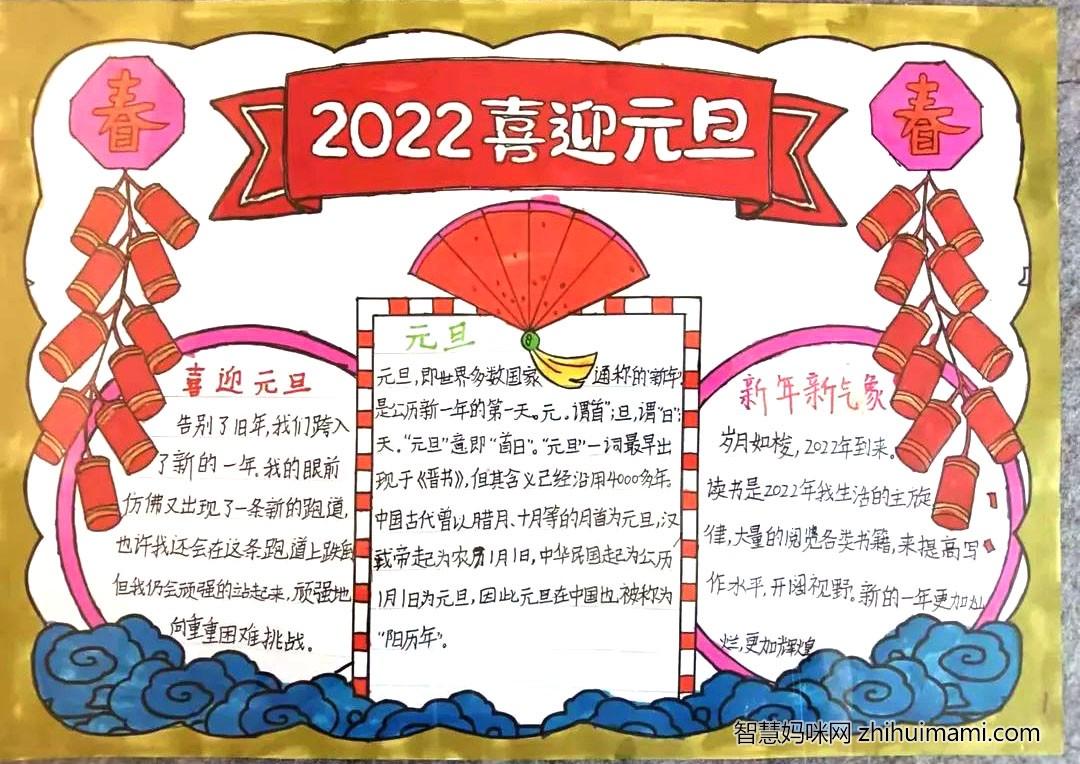 2022喜迎元旦
春
春
喜迎元旦
告别了旧年,我们跨入
了新的一年.我的眼前
仿佛又出现了一条新的跑道,
也许我还会在这条跑道上跌
但我仍会顽强的站起来,顽强地
向重重困难挑战。
元旦
元旦,即世界多数国家通称的"新年"
是公历新一年的第一天。元.谓"首";旦,谓"日";
天."元旦"意即"首日"。"元旦"一词最早出
现于《晋书》,但其含义已经沿用4000多年.
中国古代曾以腊月、十月等的月首为元旦,汉
武帝起为农历1月1日,中华民国起为公历
1月1日为元旦,因此元旦在中国也被称为
"阳历年"。
新年新气象
岁月如梭,2022年到来。
读书是2022年我生活的主旋
律,大量的阅览各类书籍,来提高写
作水平,开阔视野。新的一年更加灿
烂,更加辉煌
智慧妈咪网 zhihuimami.com